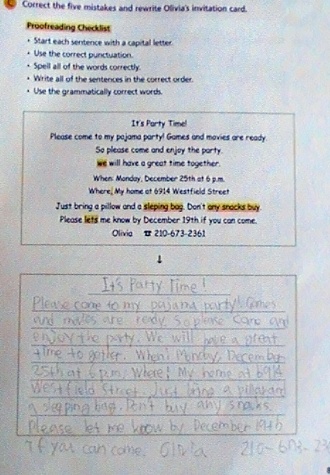 C Correct the five mistakes and rewrite Olivia's invitation card.
Proofreading Checklist
• Start each sentence with a capital letter.
• Use the correct punctuation.
• Spell all of the words correctly.
• Write all of the sentences in the correct order.
• Use the grammatically correct words.
It's Party Time!
Please come to my pajama party! Games and movies are ready.
So please come and enjoy the party.
we will have a great time together.
When: Monday, December 25th at 6 p.m.
Where: My home at 6914 Westfield Street
Just bring a pillow and a sleping bag. Don't any snacks buy.
Please lets me know by December 19th if you can come.
Olivia ☎ 210-673-2361
↓
It's Party Time!
Please come to my pajama party! Games
and movies are ready. So please come and
enjoy the party. We will have a great
time to gether. When: Monday, December
25th at 6 p.m. Where: My home at 6914
Westfield Street. Just bring a pillow and
a sleeping bag. Don't buy any snacks.
Please let me know by December 19th
if you can come. Olivia